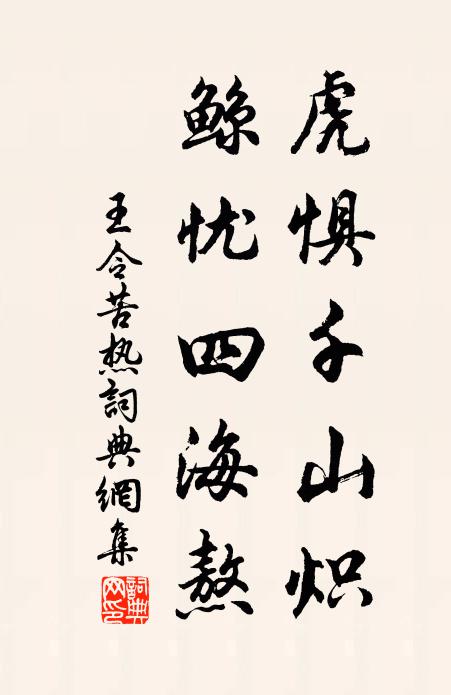 虎惧千山炽
鲸忧四海熬
王令苦热詞典網集
詞典网印